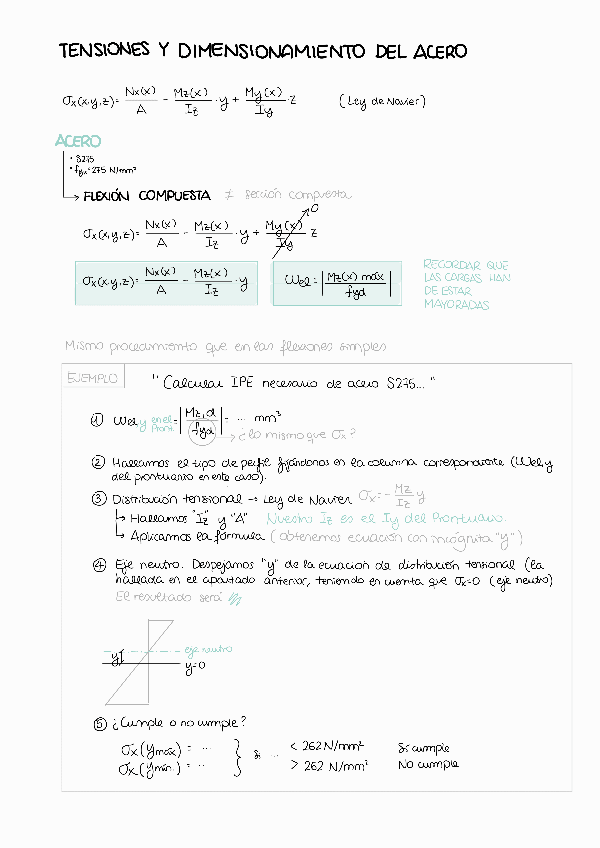 TENSIONES Y DIMENSIONAMIENTO DEL ACERO
σx(x,y,z)= Nx(x)/A − Mz(x)/Iz · y + My(x)/Iy · z (Ley de Navier)
ACERO
• S275
• fyk=275 N/mm²
→ FLEXIÓN COMPUESTA ≠ sección compuesta
σx(x,y,z)= Nx(x)/A − Mz(x)/Iz · y + My(x)/Iy z 0
σx(x,y,z)= Nx(x)/A − Mz(x)/Iz · y
Wel = |Mz(x) máx / fyd|
RECORDAR QUE
LAS CARGAS HAN
DE ESTAR
MAYORADAS
Mismo procedimiento que en las flexiones simples
EJEMPLO
"Calcular IPE necesario de acero S275..."
① Wel y en el Pront. = |Mz,d / fyd| = ... mm³
→ ¿lo mismo que σx?
② Hallamos el tipo de perfil fijándonos en la columna correspondiente (Wel,y
del prontuario en este caso).
③ Distribución tensional → Ley de Navier σx = − Mz/Iz y
↳ Hallamos "Iz" y "A" Nuestro Iz es el Iy del Prontuario.
↳ Aplicamos la fórmula (obtenemos ecuación con incógnita "y")
④ Eje neutro. Despejamos "y" de la ecuación de distribución tensional (la
hallada en el apartado anterior, teniendo en cuenta que σx=0 (eje neutro)
El resultado será y
eje neutro
y
y=0
⑤ ¿Cumple o no cumple?
σx(ymáx) = ... } si ... < 262 N/mm² Sí cumple
σx(ymín.) = ... > 262 N/mm² No cumple